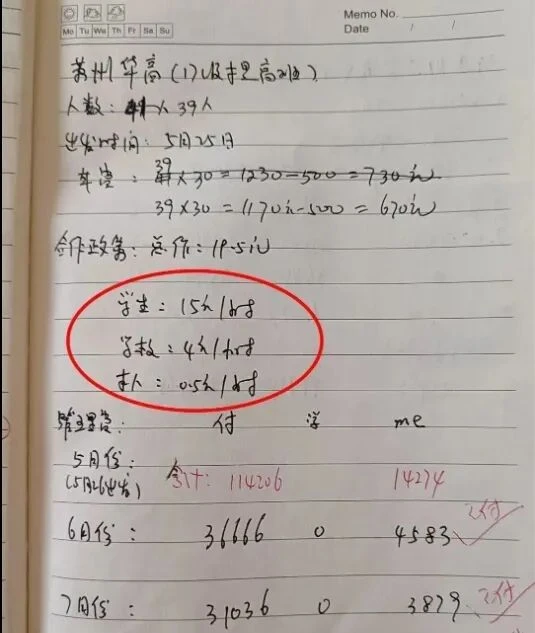 Memo No.
Mo Tu We Th Fr Sa Su
Date / /
苏州华高(17级提高班)
人数: 39人
出发时间: 5月25日
车费: 39×30=1230-500=730元
39×30=1170元-500=670元
合作政策: 总价: 19.5元
学生: 15元/时
学校: 4元/时
本人: 0.5元/时
管理费: 付 学 me
5月份: 合计: 114206 14274
(5月26出发)
6月份: 36666 0 4583 已付
7月份: 31036 0 3879 已付